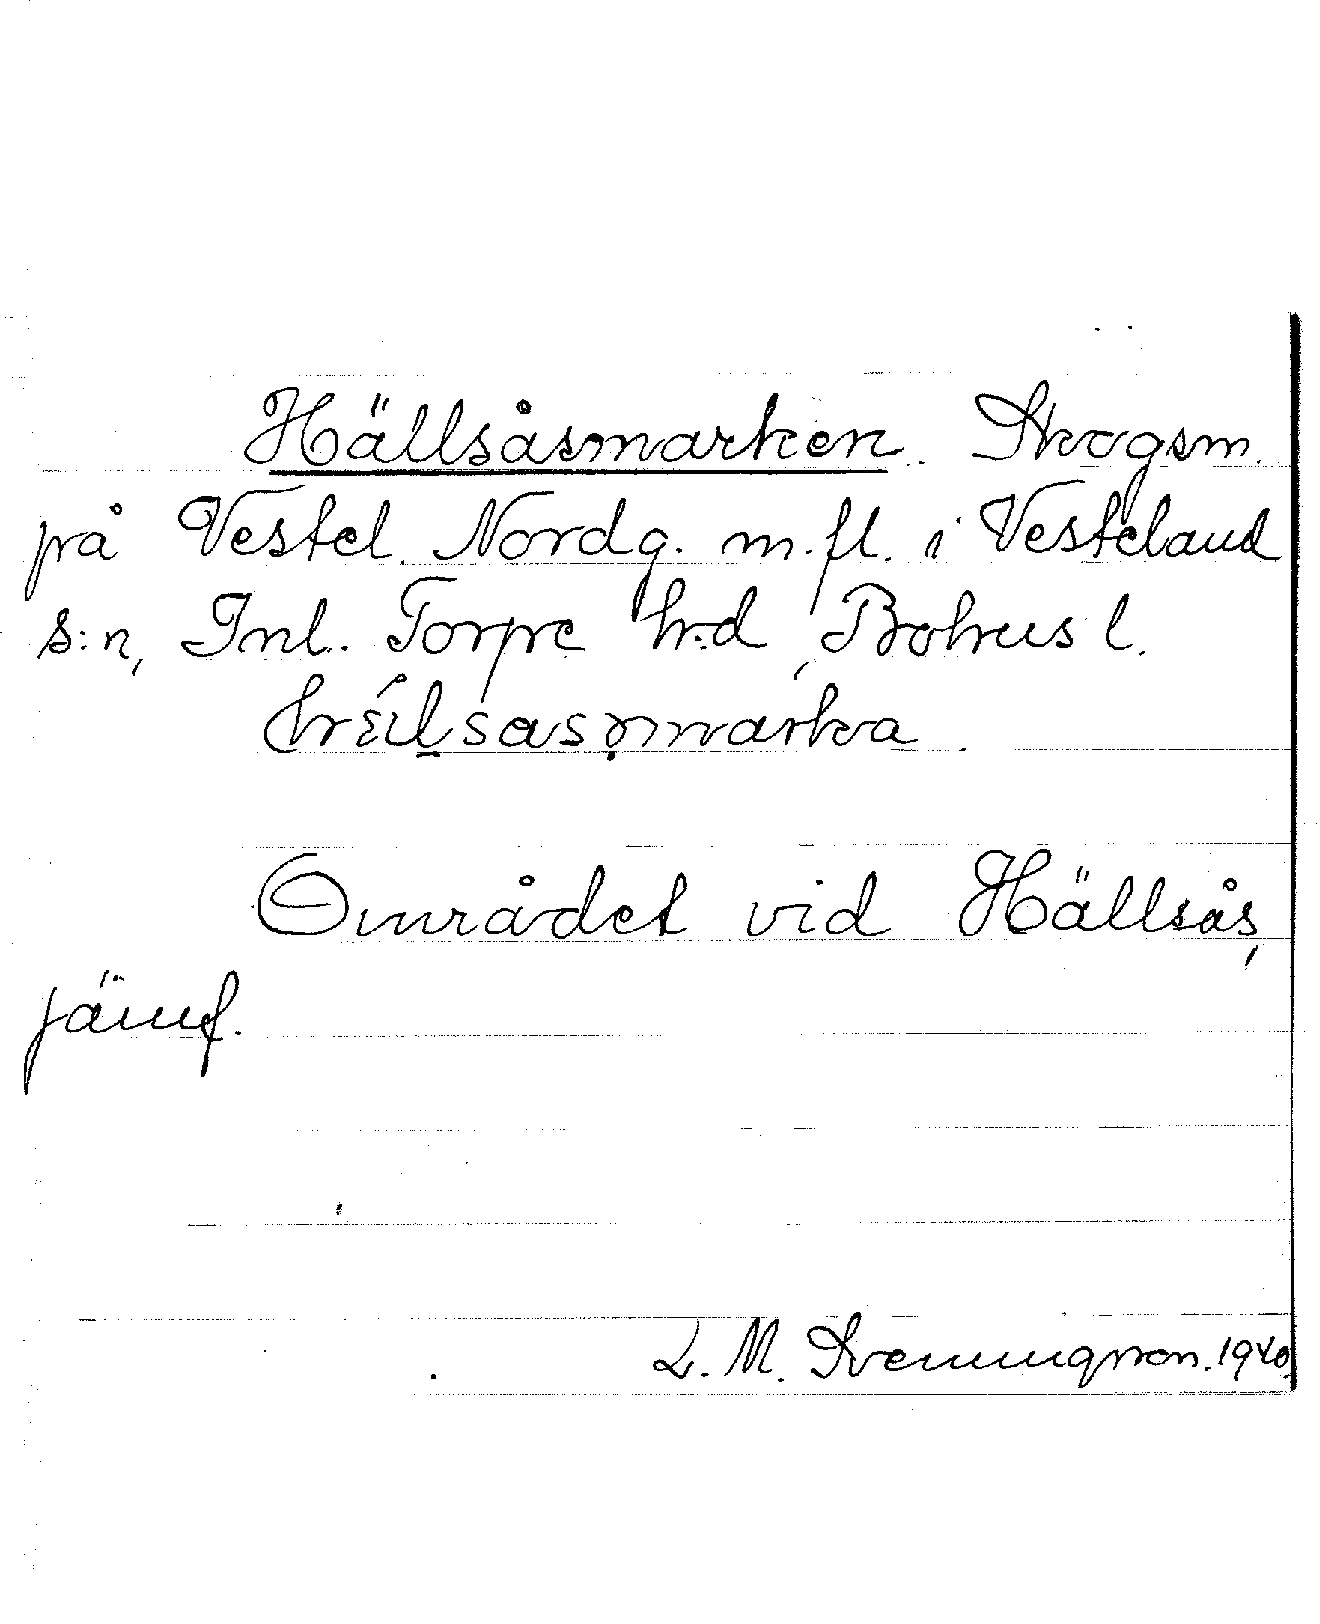 Hällsåsmarken. Skogsm.
på Vestel. Nordg. m.fl. i Vesteland
s:n, Inl. Torpe h:d, Bohusl.
Området vid Hällsås,
jämf.
L. M. Svenungsson. 1940.